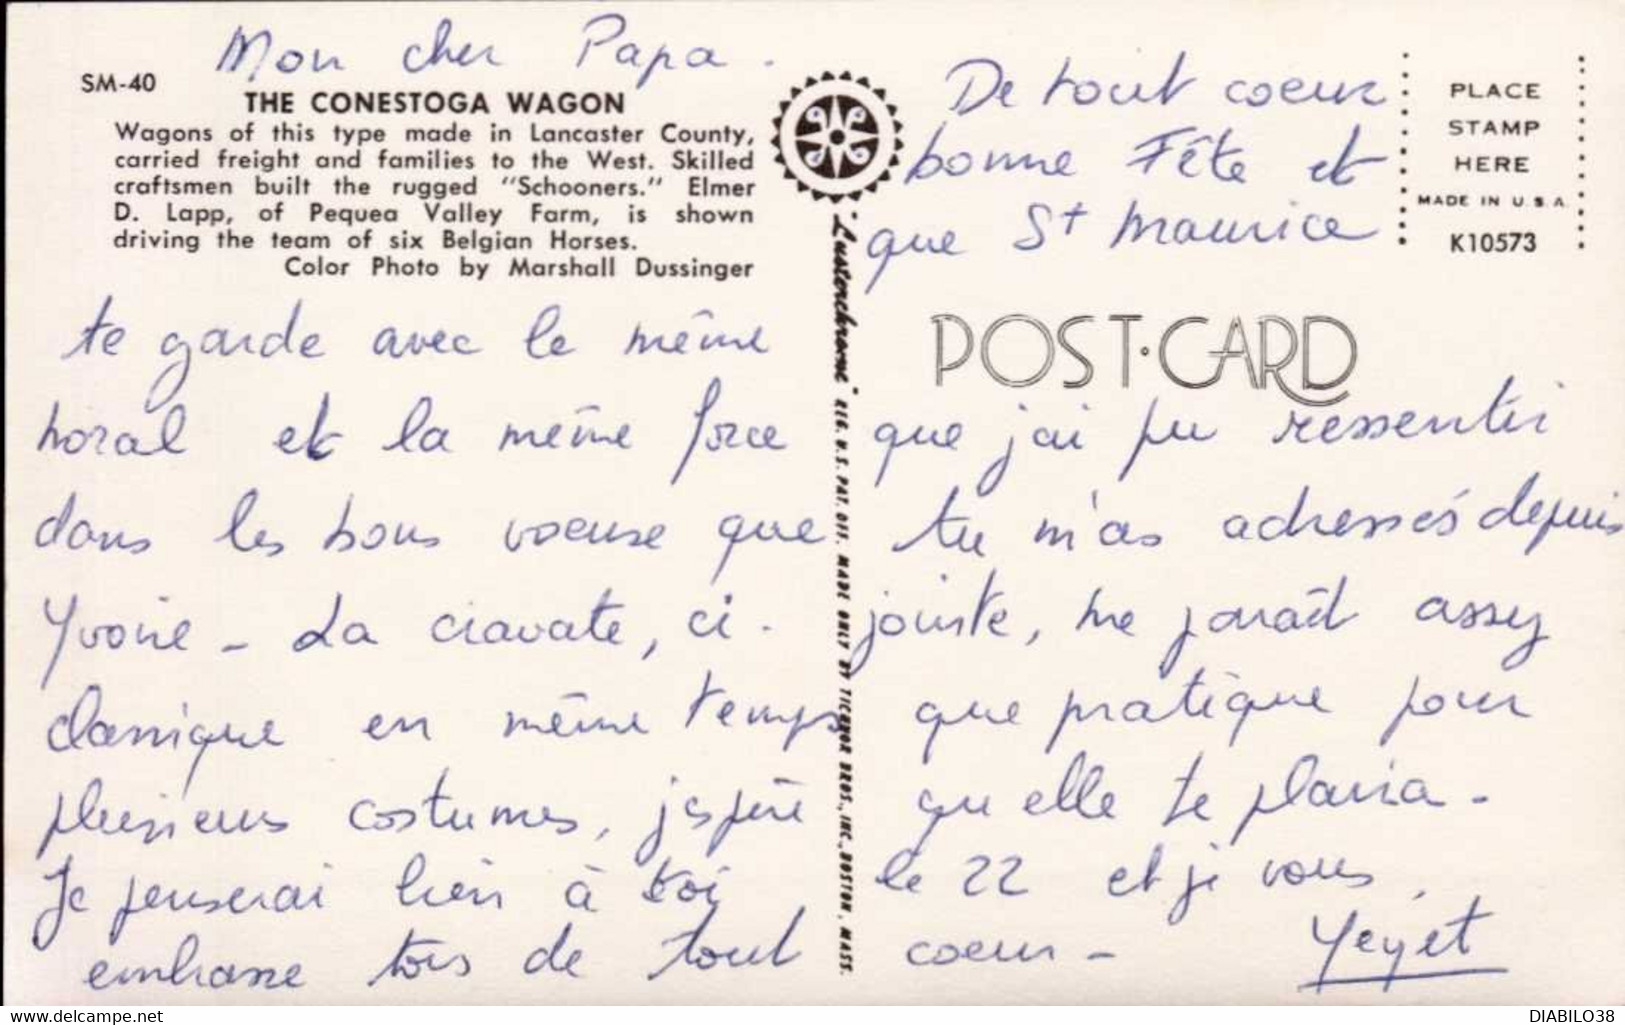 Mon cher Papa.
SM-40
THE CONESTOGA WAGON
Wagons of this type made in Lancaster County,
carried freight and families to the West. Skilled
craftsmen built the rugged "Schooners." Elmer
D. Lapp, of Pequea Valley Farm, is shown
driving the team of six Belgian Horses.
Color Photo by Marshall Dussinger
De tout coeur
bonne Fête et
que St Maurice
PLACE
STAMP
HERE
MADE IN U.S.A.
K10573
POST·CARD
"Lusterchrome" REG. U.S. PAT. OFF. MADE ONLY BY TICHNOR BROS., INC., BOSTON, MASS.
te garde avec le même
moral et la même force que j'ai pu ressentir
dans les bons voeuse que tu m'as adressés depuis
Yvoire - La cravate, ci-jointe, me paraît assez
classique en même temps que pratique pour
plusieurs costumes, j'espère qu'elle te plaira -
Je penserai bien à toi le 22 et je vous
embrasse tous de tout coeur -
Yeyet
DIABILO38
www.delcampe.net